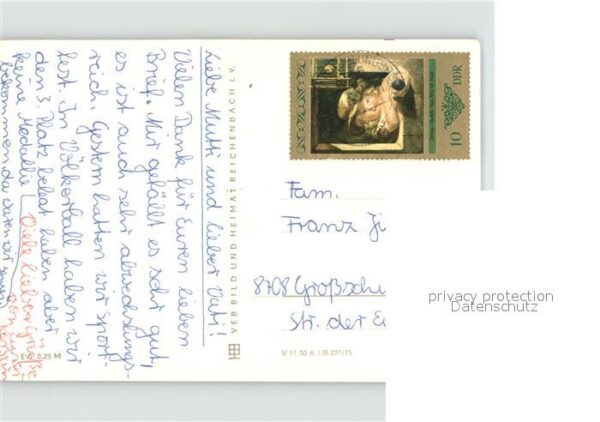 Liebe Mutti und lieber Vati!
Vielen Dank für Euren lieben
Brief. Mir gefällt es sehr gut,
es ist auch sehr abwechslungs-
reich. Gestern hatten wir Sport-
fest. Im Völkerball haben wir
den 3. Platz belegt haben aber
keine Medaille
bekommen da waren wir
Viele liebe Grüße
EVP 0,25 M
VEB BILD UND HEIMAT REICHENBACH I. V.
V 11 50 A 1/B 227/75
10
DDR
Fam.
Franz
8708 Großsch
Str. der
privacy protection
Datenschutz